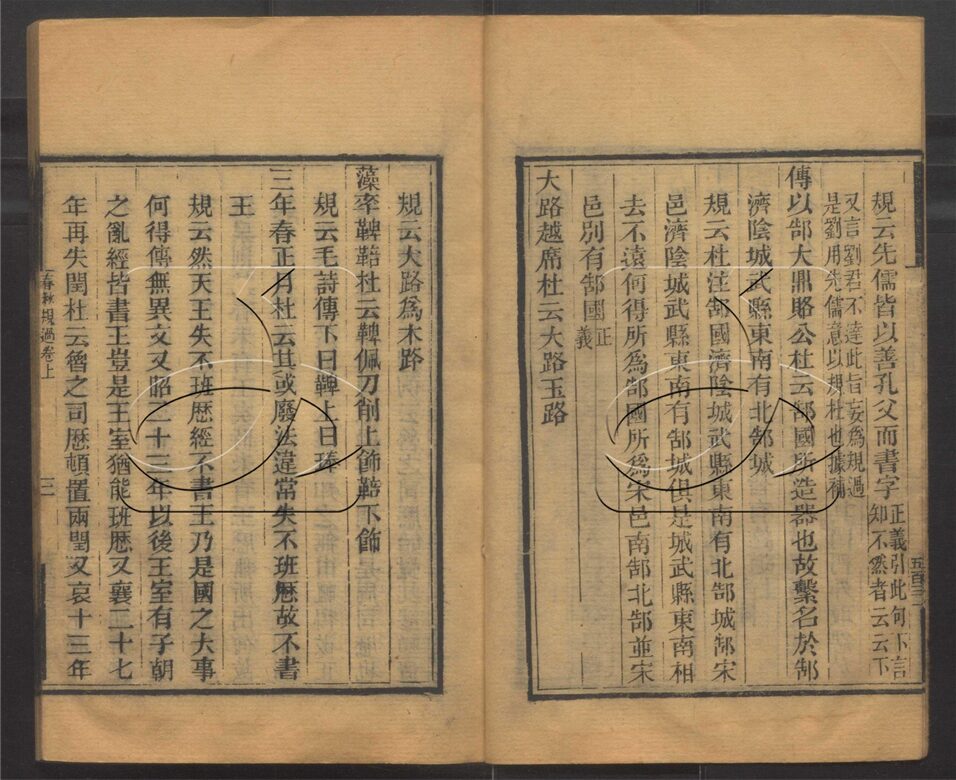 規云先儒皆以善孔父而書字正義引此何下言知不然者云云下
又言劉君不達此旨妄爲規過是劉用先儒意以規杜也據補
傳以郜大鼎賂公杜云郜國所造器也故繫名於郜
濟陰城武縣東南有北郜城
規云杜注郜國濟陰城武縣東南有北郜城郜宋
邑濟陰城武縣東南有郜城俱是城武縣東南相
去不遠何得所爲郜國所爲宋邑南郜北郜並宋
邑別有郜國正義
大路越席杜云大路玉路
規云大路爲木路
藻率鞞鞛杜云鞞佩刀削上飾鞛下飾
規云毛詩傳下曰鞞上曰琫
三年春正月杜云其或廢法違常失不班厯故不書
王
規云然天王失不班厯經不書王乃是國之大事
何得傳無異文又昭二十三年以後王室有子朝
之亂經皆書王豈是王室猶能班厯又襄二十七
年再失閏杜云魯之司厯頓置兩閏又哀十三年
春秋規過卷上
三